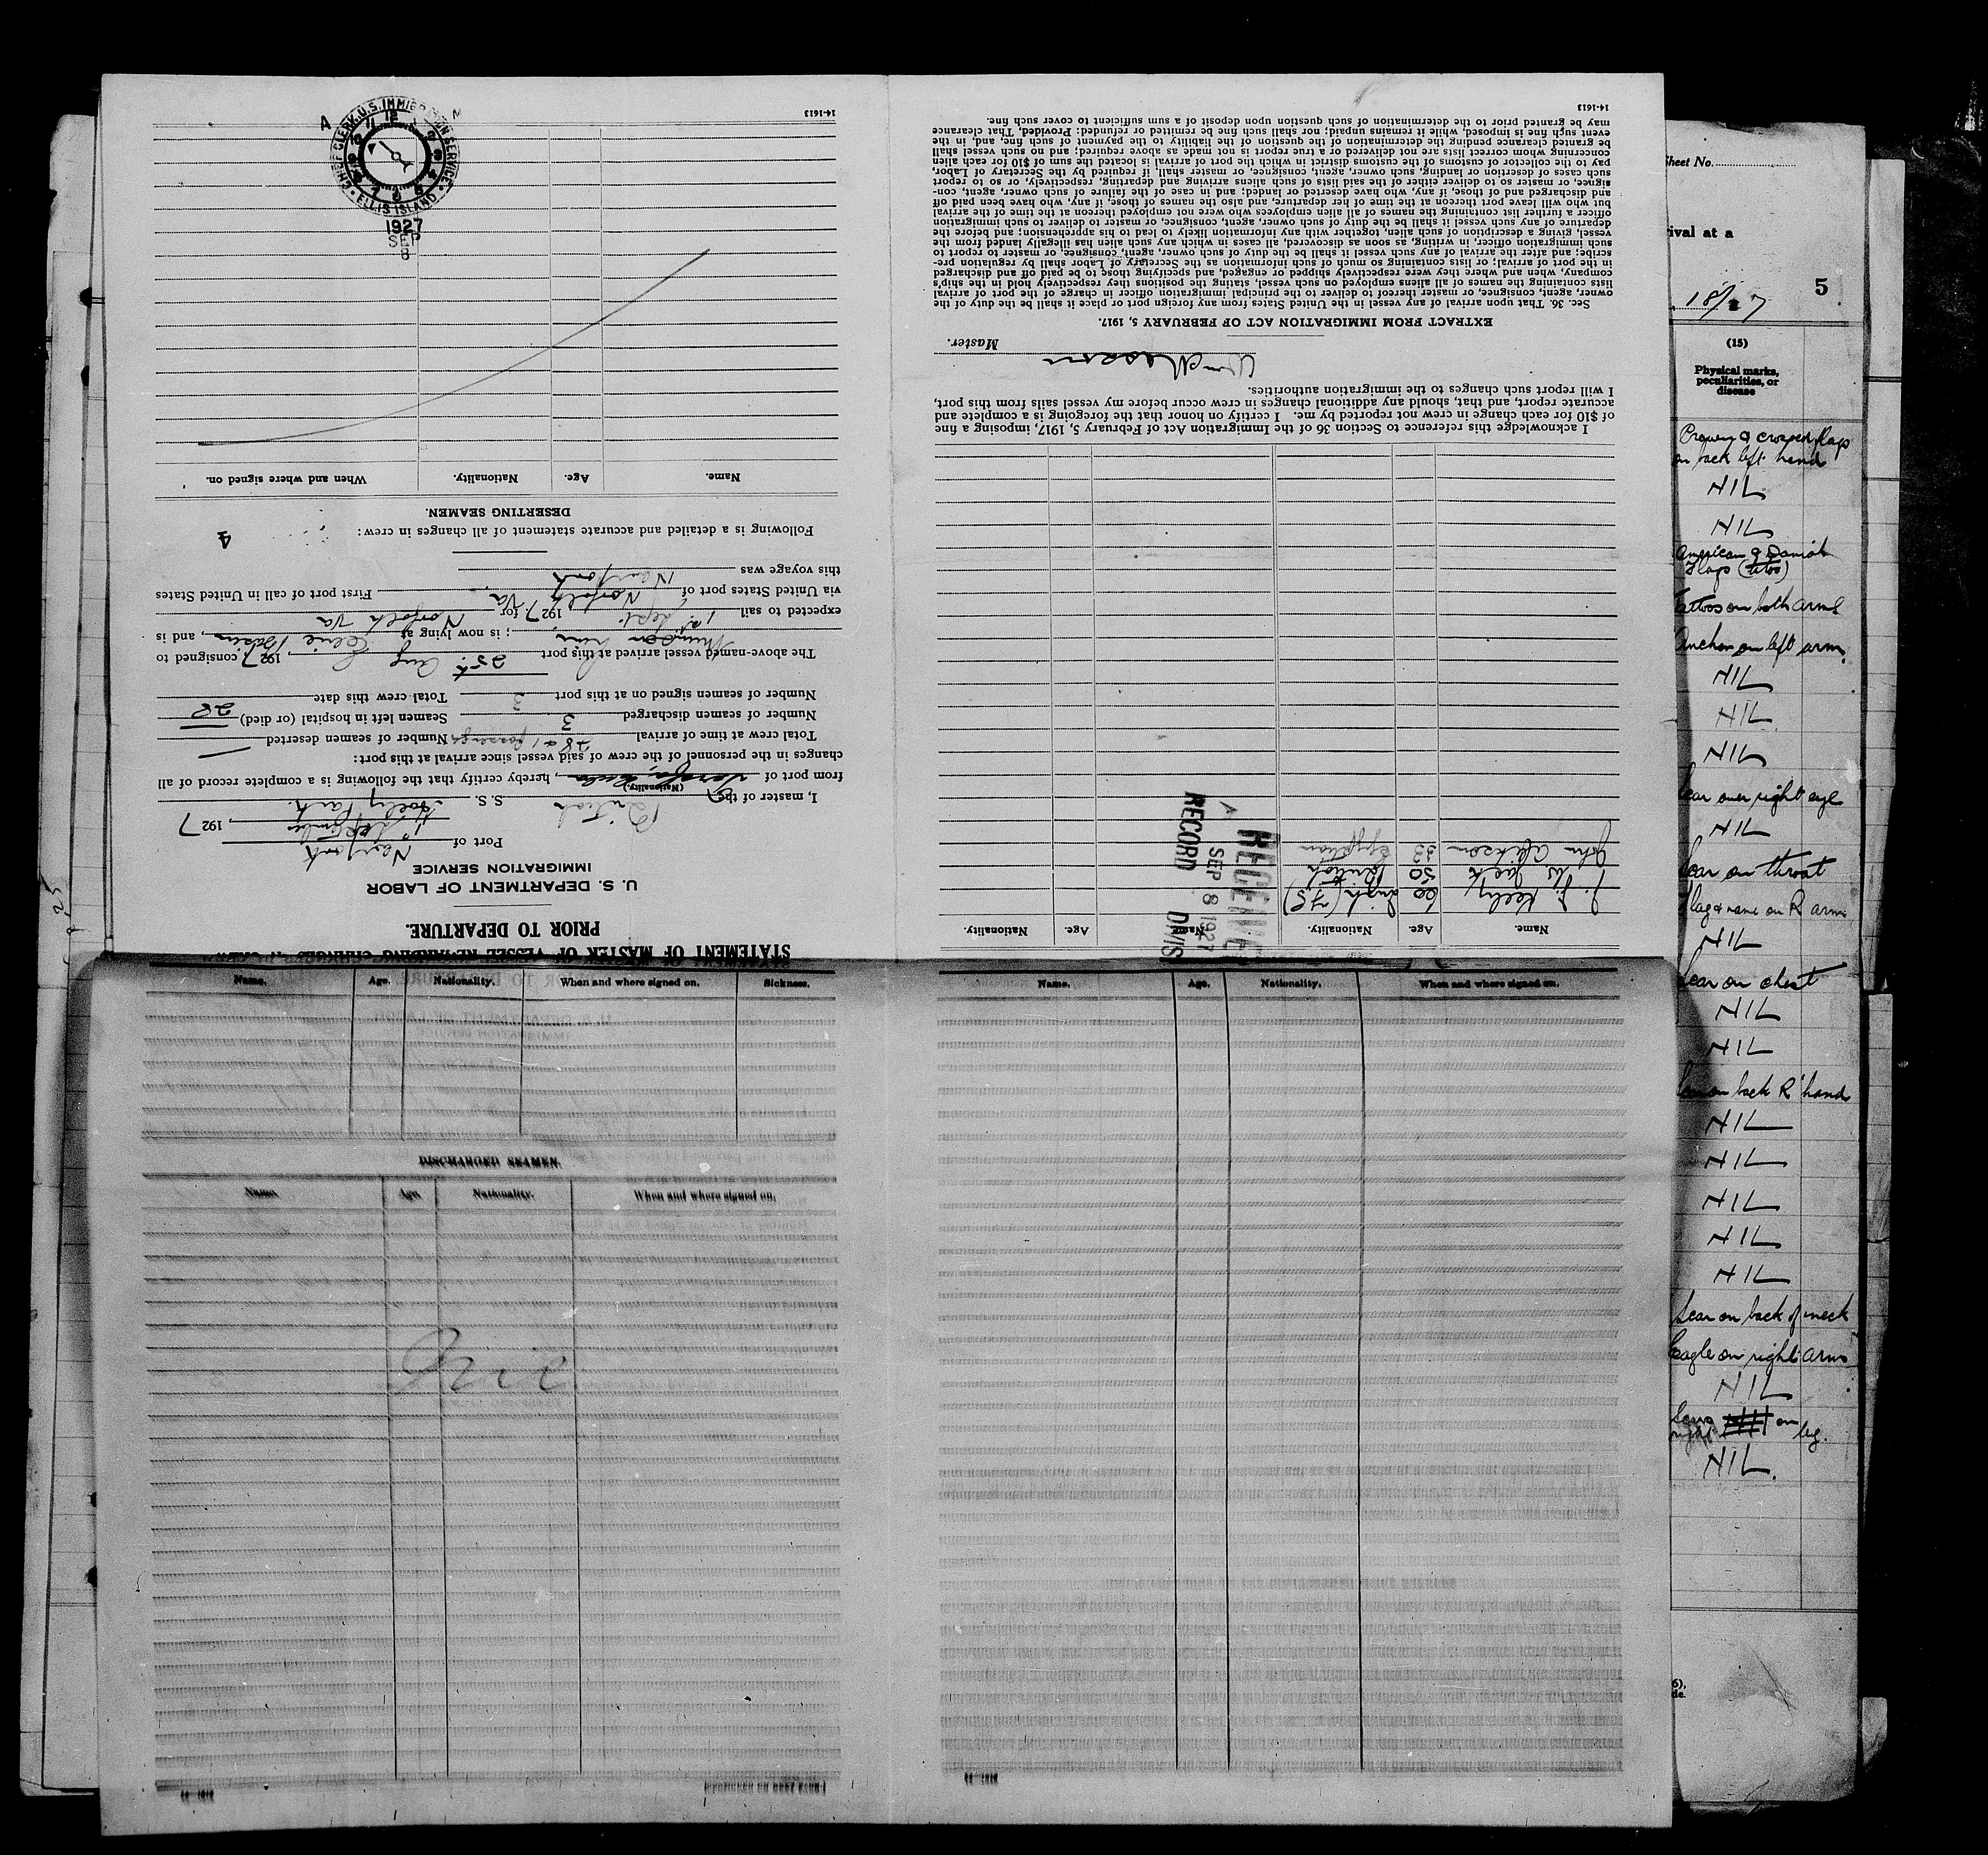 STATEMENT OF MASTER OF VESSEL REGARDING CHANGES IN CREW
PRIOR TO DEPARTURE.
U. S. DEPARTMENT OF LABOR
IMMIGRATION SERVICE
Port of New York
1st September, 1927
I, master of the British S. S. Holly Park
(Nationality)
from port of , hereby certify that the following is a complete record of all
changes in the personnel of the crew of said vessel since arrival at this port:
Total crew at time of arrival 28 & 1 passenger Number of seamen deserted —
Number of seamen discharged 3 Seamen left in hospital (or died) —
Number of seamen signed on at this port 3 Total crew this date 28
The above-named vessel arrived at this port 25th Aug, 1927, consigned to
Munson Line; is now lying at Erie Basin, and is
expected to sail 1st Sept. 1927 for Norfolk Va
via United States port of Norfolk Va. First port of call in United States
this voyage was New York
Following is a detailed and accurate statement of all changes in crew:
4
DESERTING SEAMEN.
Name. Age. Nationality. When and where signed on.
CHIEF CLERK, U.S. IMMIGRATION SERVICE
ELLIS ISLAND
1927
SEP
8
14-1613
Name. Age. Nationality. Name. Age. Nationality.
J. J. Kelly 60 Irish (FS)
J. W. Jack 50 British
John Alikson 33 Egyptian
RECEIVED
A SEP 8 1927
RECORD DIVIS
I acknowledge this reference to Section 36 of the Immigration Act of February 5, 1917, imposing a fine
of $10 for each change in crew not reported by me. I certify on honor that the foregoing is a complete and
accurate report, and that, should any additional changes in crew occur before my vessel sails from this port,
I will report such changes to the immigration authorities.
Master.
EXTRACT FROM IMMIGRATION ACT OF FEBRUARY 5, 1917.
Sec. 36. That upon arrival of any vessel in the United States from any foreign port or place it shall be the duty of the
owner, agent, consignee, or master thereof to deliver to the principal immigration officer in charge of the port of arrival
lists containing the names of all aliens employed on such vessel, stating the positions they respectively hold in the ship's
company, when and where they were respectively shipped or engaged, and specifying those to be paid off and discharged
in the port of arrival; or lists containing so much of such information as the Secretary of Labor shall by regulation pre-
scribe; and after the arrival of any such vessel it shall be the duty of such owner, agent, consignee, or master to report to
such immigration officer, in writing, as soon as discovered, all cases in which any such alien has illegally landed from the
vessel, giving a description of such alien, together with any information likely to lead to his apprehension; and before the
departure of any such vessel it shall be the duty of such owner, agent, consignee, or master to deliver to such immigration
officer a further list containing the names of all alien employees who were not employed thereon at the time of the arrival
but who will leave port thereon at the time of her departure, and also the names of those, if any, who have been paid off
and discharged and of those, if any, who have deserted or landed; and in case of the failure of such owner, agent, con-
signee, or master so to deliver either of the said lists of such aliens arriving and departing, respectively, or so to report
such cases of desertion or landing, such owner, agent, consignee, or master shall, if required by the Secretary of Labor,
pay to the collector of customs of the customs district in which the port of arrival is located the sum of $10 for each alien
concerning whom correct lists are not delivered or a true report is not made as above required; and no such vessel shall
be granted clearance pending the determination of the question of the liability to the payment of such fine, and, in the
event such fine is imposed, while it remains unpaid; nor shall such fine be remitted or refunded: Provided, That clearance
may be granted prior to the determination of such question upon deposit of a sum sufficient to cover such fine.
14-1613
Name. Age. Nationality. When and where signed on. Sickness.
DISCHARGED SEAMEN.
Name. Age. Nationality. When and where signed on.
Name. Age. Nationality. When and where signed on.
Sheet No.
ival at a
5
(15)
Physical marks,
peculiarities, or
disease
on back left hand
NIL
NIL
American & Danish
Flags (tatoo)
Tattoos on both arms
Anchor on left arm.
NIL
NIL
NIL
Scar over right eye
NIL
Scar on throat
Flag & name on R arm
NIL
Scar on chest
NIL
NIL
Scar on back R hand
NIL
NIL
NIL
NIL
NIL
Scar on back of neck
Eagle on right arm
NIL
on
leg.
NIL.